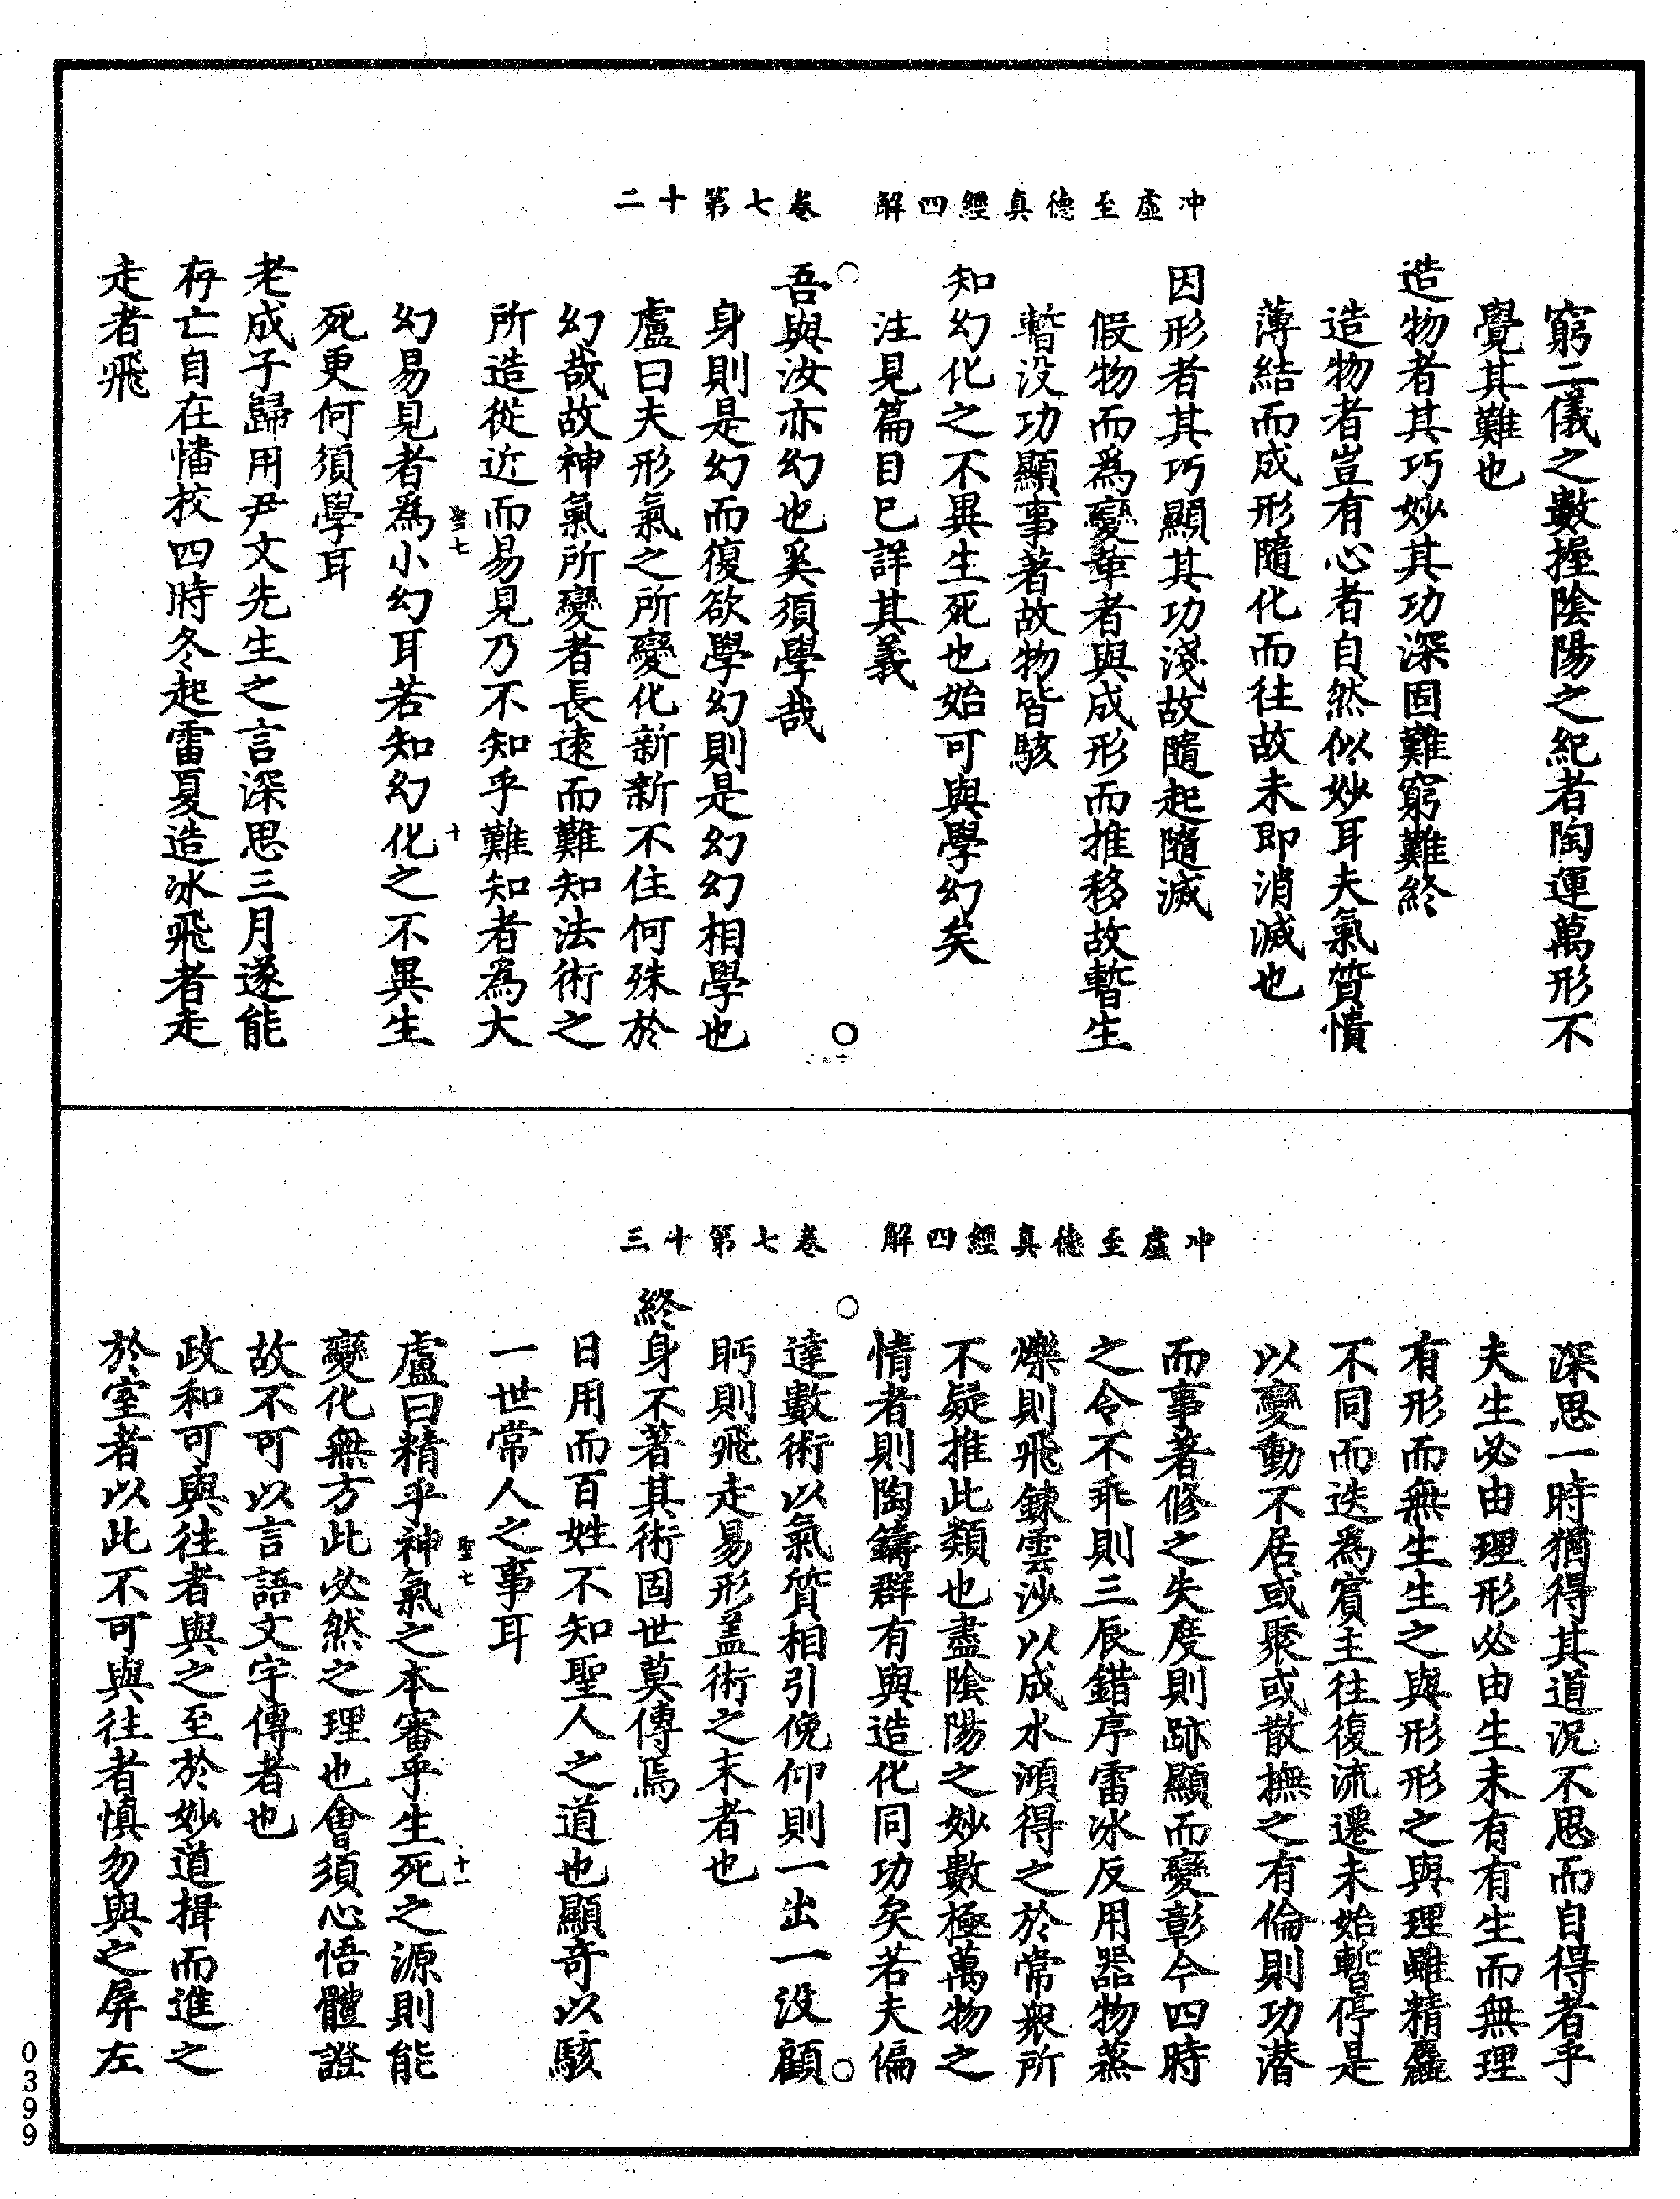 冲虛至德真經四解　卷七第十二
窮二儀之數握陰陽之紀者陶運萬形不
覺其難也
造物者其巧妙其功深固難窮難終
造物者豈有心者自然似妙耳夫氣質憒
薄結而成形隨化而往故未即消滅也
因形者其巧顯其功淺故隨起隨滅
假物而為變革者與成形而推移故暫生
暫没功顯事著故物皆駭
知幻化之不異生死也始可與學幻矣
注見篇目已詳其義
吾與汝亦幻也奚須學哉
身則是幻而復欲學幻則是幻幻相學也
盧曰夫形氣之所變化新新不住何殊於
幻哉故神氣所變者長遠而難知法術之
所造從近而易見乃不知乎難知者為大
聖七　十
幻易見者為小幻耳若知幻化之不異生
死更何須學耳
老成子歸用尹文先生之言深思三月遂能
存亡自在憣校四時冬起雷夏造冰飛者走
走者飛
冲虛至德真經四解　卷七第十三
深思一時猶得其道況不思而自得者乎
夫生必由理形必由生未有有生而無理
有形而無生生之與形形之與理雖精麤
不同而迭為賓主往復流遷未始暫停是
以變動不居或聚或散撫之有倫則功潛
而事著修之失度則跡顯而變彰今四時
之令不乖則三辰錯序雷冰反用器物蒸
爍則飛鍊雲沙以成水澒得之於常衆所
不疑推此類也盡陰陽之妙數極萬物之
情者則陶鑄群有與造化同功矣若夫偏
達數術以氣質相引俛仰則一出一没顧
眄則飛走易形盖術之末者也
終身不著其術固世莫傳焉
日用而百姓不知聖人之道也顯奇以駭
一世常人之事耳
聖七　十一
盧曰精乎神氣之本審乎生死之源則能
變化無方此必然之理也會須心悟體證
故不可以言語文字傳者也
政和可與往者與之至於妙道揖而進之
於室者以此不可與往者慎勿與之屏左
0399